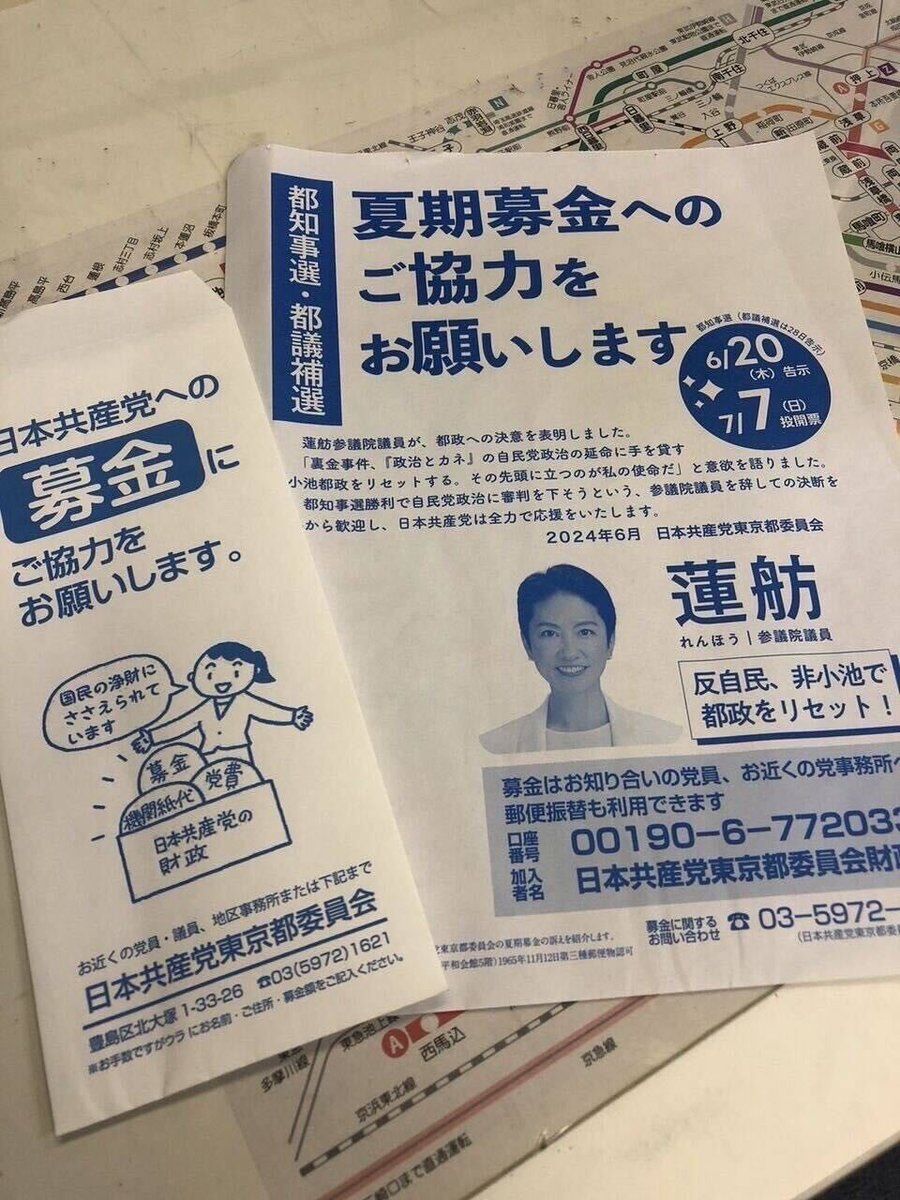 都知事選・都議補選
夏期募金への
ご協力を
お願いします
都知事選(都議補選は28日告示)
6/20
(木)告示
7/7(日)
投開票
蓮舫参議院議員が、都政への決意を表明しました。
「裏金事件、『政治とカネ』の自民党政治の延命に手を貸す
小池都政をリセットする。その先頭に立つのが私の使命だ」と意欲を語りました。
都知事選勝利で自民党政治に審判を下そうという、参議院議員を辞しての決断を
から歓迎し、日本共産党は全力で応援をいたします。
2024年6月 日本共産党東京都委員会
蓮舫
れんほう|参議院議員
反自民、非小池で
都政をリセット!
募金はお知り合いの党員、お近くの党事務所へ
郵便振替も利用できます
口座番号 00190-6-772033
加入者名 日本共産党東京都委員会財政
募金に関するお問い合わせ ☎03-5972-
(日本共産党東京都委
党東京都委員会の夏期募金の訴えを紹介します。
平和会館5階)1965年11月12日第三種郵便物認可
日本共産党への
募金に
ご協力を
お願いします。
国民の浄財に
ささえられて
います
募金
党費
機関紙代
日本共産党の
財政
お近くの党員・議員、地区事務所または下記まで
日本共産党東京都委員会
豊島区北大塚1-33-26 ☎03(5972)1621
※お手数ですがウラにお名前・ご住所・募金額をご記入ください。
王子神谷
志茂
N
町屋
北千住
南千住
三ノ輪
入谷
上野
稲荷町
田原町
浅草
押上
A
Z
G
蔵前
浅草橋
馬喰町
馬喰横山
小伝馬
京橋
熊野前
つくばエクスプレス線
板橋本町
本蓮沼
志村坂上
志村三丁目
蓮根
西台
高島平
新高島平
東急池上線
多摩川線
A
西馬込
京浜東北線
京急線
三崎口まで直通運転